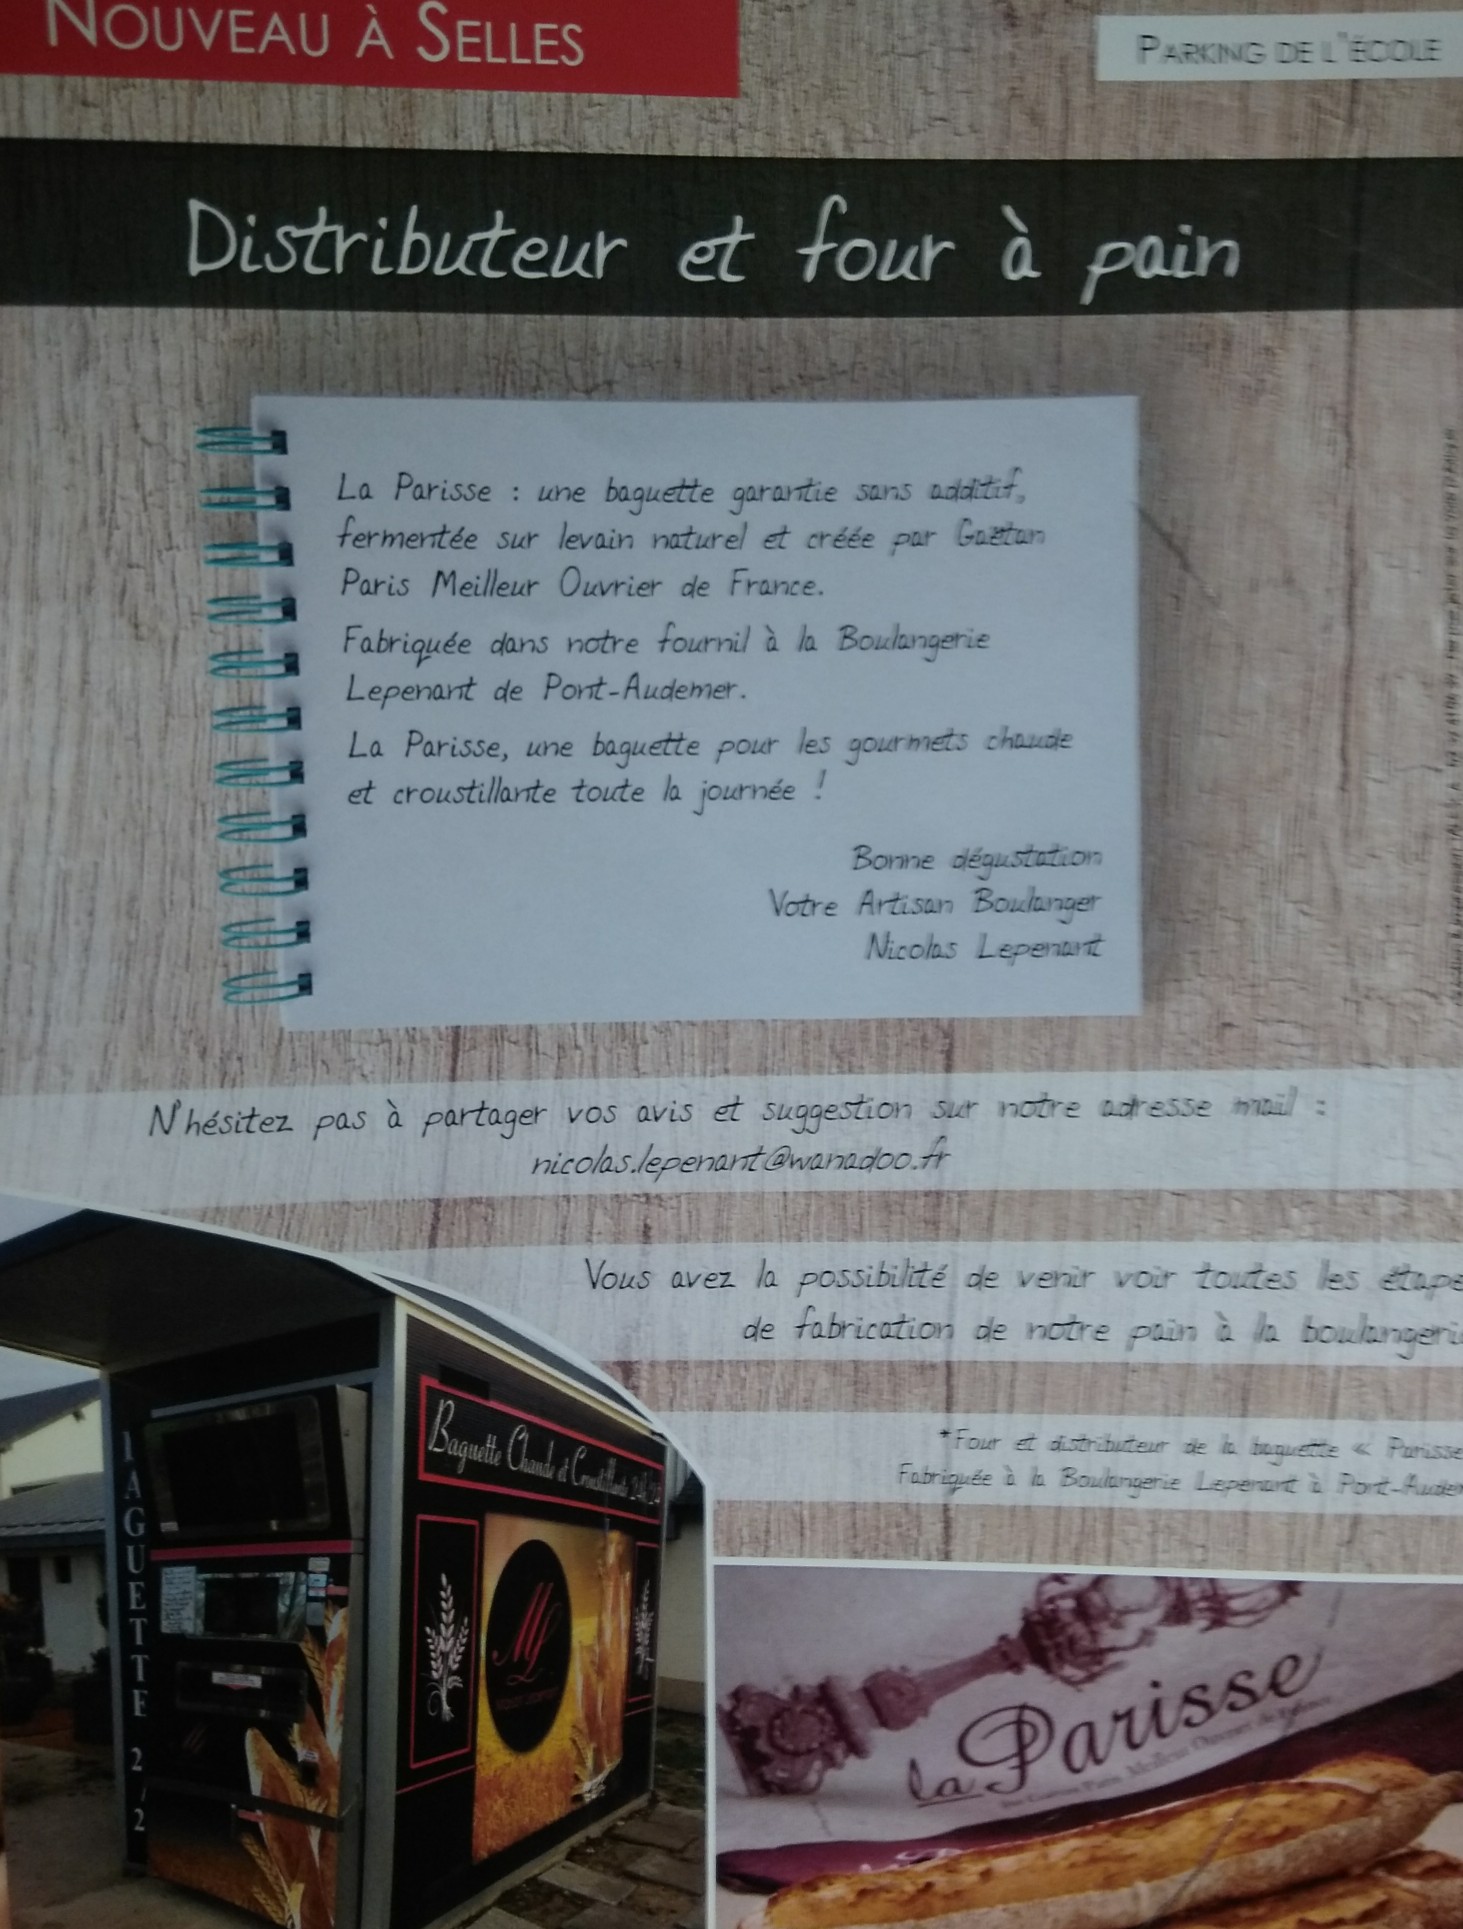 NOUVEAU À SELLES
PARKING DE L''ÉCOLE
Distributeur et four à pain
La Parisse : une baguette garantie sans additif,
fermentée sur levain naturel et créée par Gaëtan
Paris Meilleur Ouvrier de France.
Fabriquée dans notre fournil à la Boulangerie
Lepenant de Pont-Audemer.
La Parisse, une baguette pour les gourmets chaude
et croustillante toute la journée !
Bonne dégustation
Votre Artisan Boulanger
Nicolas Lepenant
N'hésitez pas à partager vos avis et suggestion sur notre adresse mail :
nicolas.lepenant@wanadoo.fr
Vous avez la possibilité de venir voir toutes les étape
de fabrication de notre pain à la boulangeri
*Four et distributeur de la baguette « Parisse
Fabriquée à la Boulangerie Lepenant à Pont-Aude
Baguette Chaude et Croustillante
BAGUETTE 2
NL
la Parisse
Meilleur Ouvrier de France